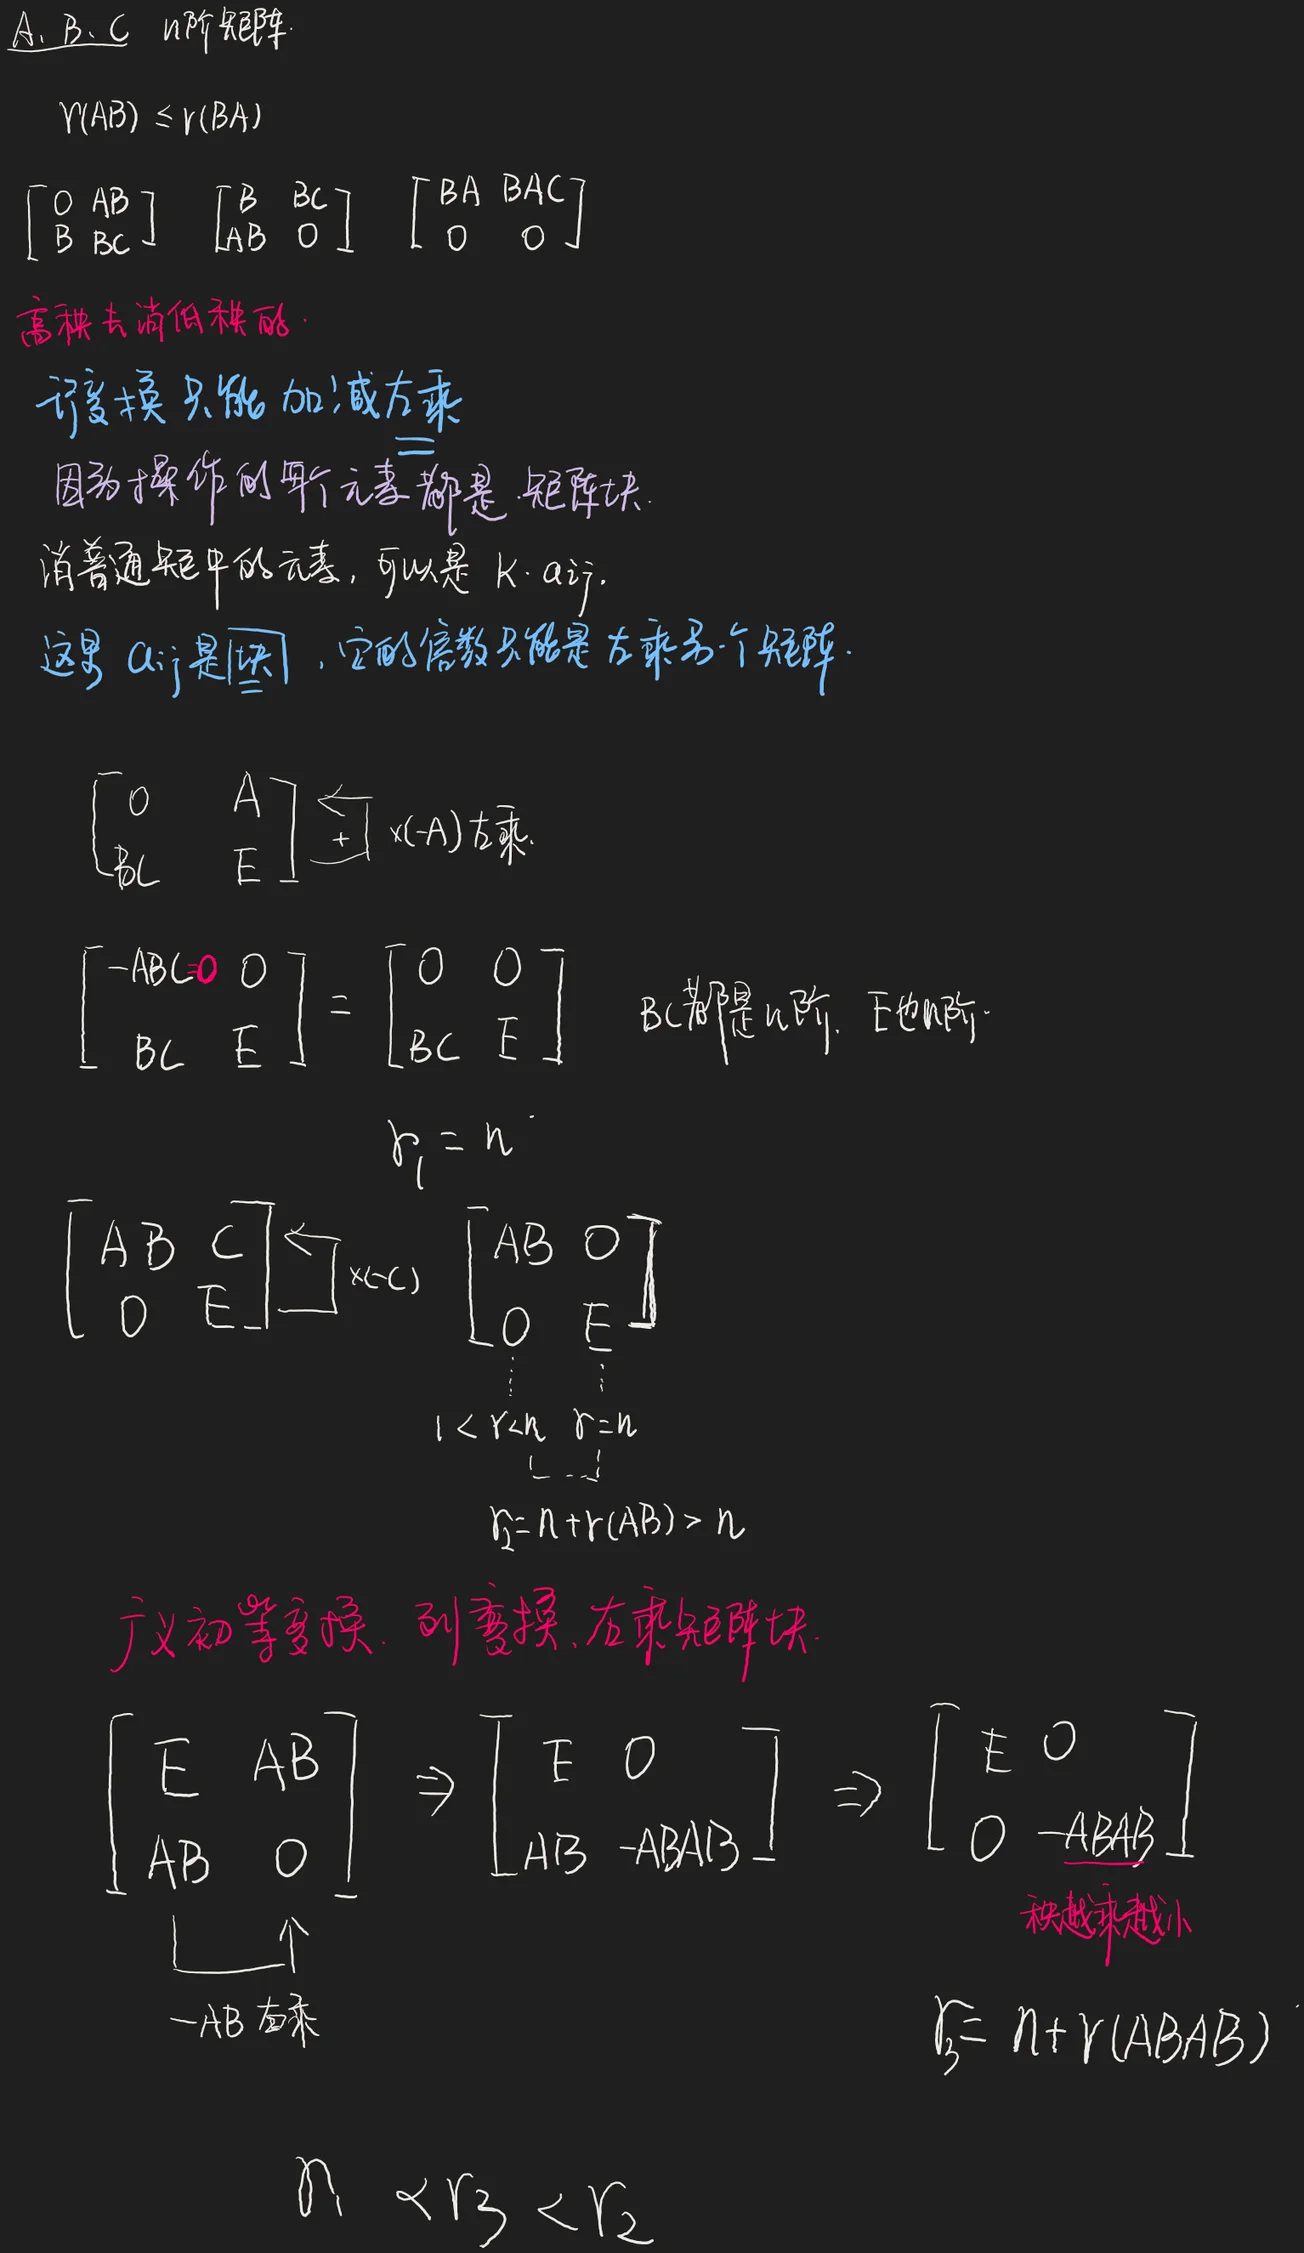 A、B、C n阶矩阵.
r(AB) ≤ r(BA)
[O AB; B BC] [B BC; AB O] [BA BAC; O O]
高秩去消低秩的.
行变换只能加减左乘
因为操作的每个元素都是.矩阵块.
消普通矩中的元素, 可以是 k·aij.
这里 aij是块, 它的倍数只能是左乘另一个矩阵.
[O A; BC E] + ×(-A) 左乘.
[-ABC=O O; BC E] = [O O; BC E] BC都是n阶. E也n阶.
r1 = n
[AB C; O E] ×(-C) [AB O; O E]
1 < r<n r=n
r2 = n+r(AB) > n
广义初等变换. 列变换、右乘矩阵块.
[E AB; AB O] ⇒ [E O; AB -ABAB] ⇒ [E O; O -ABAB]
秩越乘越小
-AB 右乘
r3 = n+r(ABAB)
r1 < r3 < r2